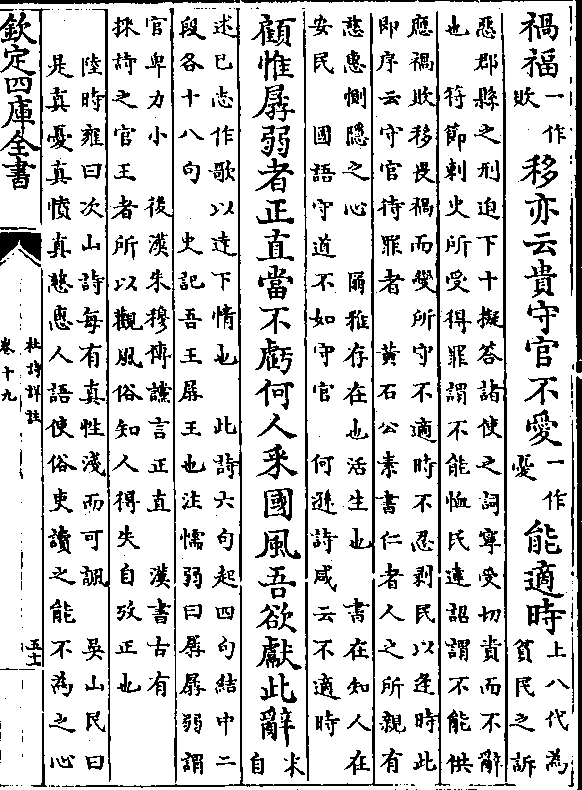 禍福一作敗移亦云貴守官不愛一作憂能適時上八代為貧民之訴
惡郡縣之刑迫下十擬答諸使之詞寧受切責而不辭
也　符節刺史所受得罪謂不能恤民違詔謂不能供
應禍敗移畏禍而變所守不適時不忍剥民以逢時此
即序云守官待罪者　黃石公素書仁者人之所親有
慈惠惻隱之心　爾雅存在也活生也　書在知人在
安民　國語守道不如守官　何遜詩咸云不適時
顧惟孱弱者正直當不虧何人采國風吾欲獻此辭末自
述已志作歌以達下情也　此詩六句起四句結中二
段各十八句　史記吾王孱王也注懦弱曰孱孱弱謂
官卑力小　後漢朱穆傳讜言正直　漢書古有
採詩之官王者所以觀風俗知人得失自攷正也
陸時雍曰次山詩每有真性淺而可諷　吳山民曰
是真憂真憤真慈惠人語使俗吏讀之能不為之心
欽定四庫全書
杜詩詳註
卷十九
五十一